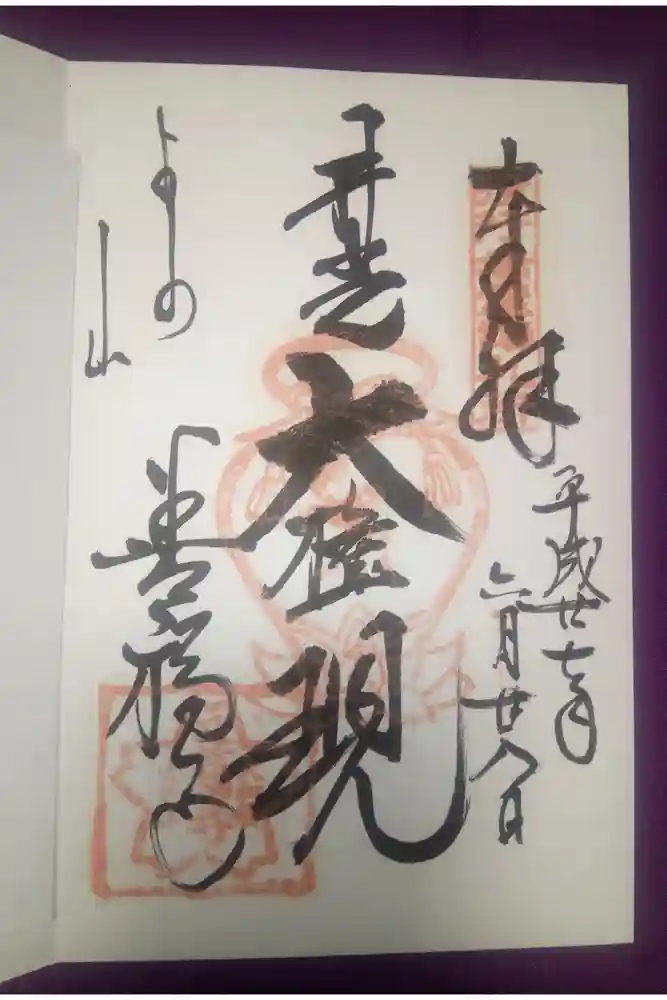 奉拝
平成廿七年
六月廿八日
井光大権現
よしの山
善福寺